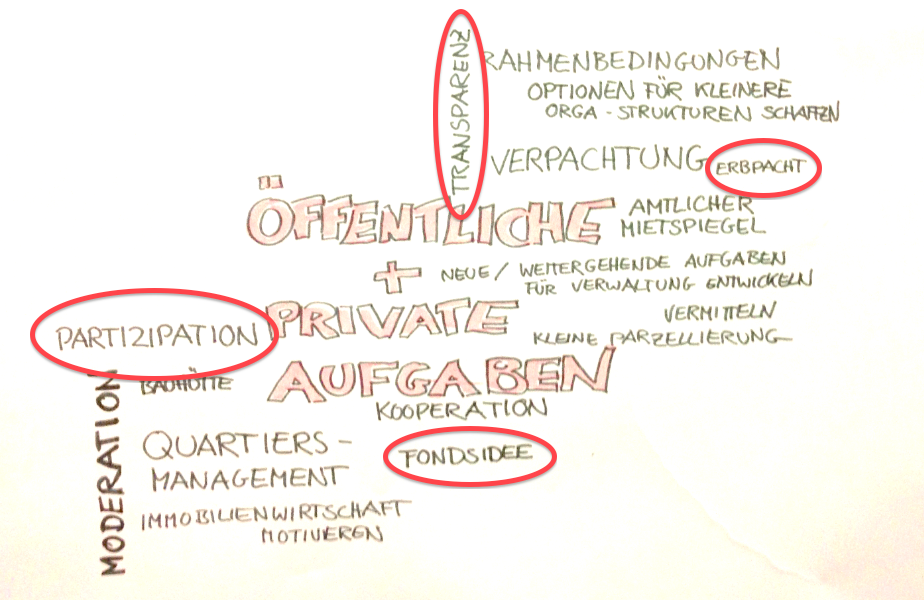 TRANSPARENZ
RAHMENBEDINGUNGEN
OPTIONEN FÜR KLEINERE
ORGA - STRUKTUREN SCHAFFZN
VERPACHTUNG ERBPACHT
ÖFFENTLICHE
AMTLICHER
MIETSPIEGEL
+
NEUE / WEITERGEHENDE AUFGABEN
FÜR VERWALTUNG ENTWICKELN
PRIVATE
VERMITTELN
PARTIZIPATION
KLEINE PARZELLIERUNG
AUFGABEN
BAUHÜTTE
KOOPERATION
MODERATION
QUARTIERS-
MANAGEMENT
FONDSIDEE
IMMOBILIENWIRTSCHAFT
MOTIVIEREN